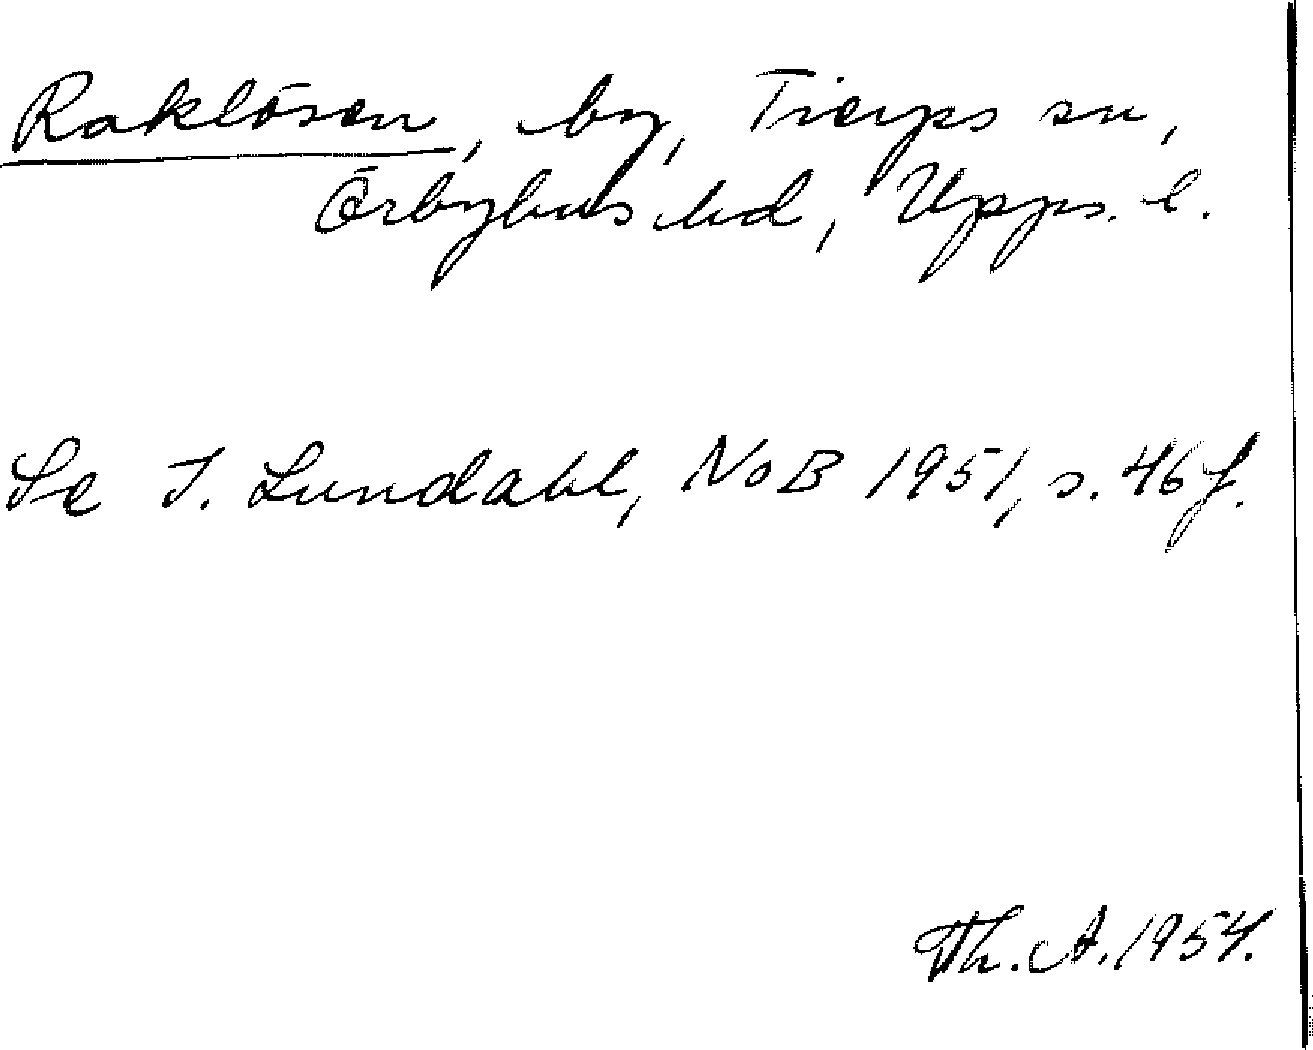 Raklösen, by, Tierps sn,
Örbyhus hd, Upps. l.
Se I. Lundahl, NoB 1951, s. 46 f.
Th. A. 1954.